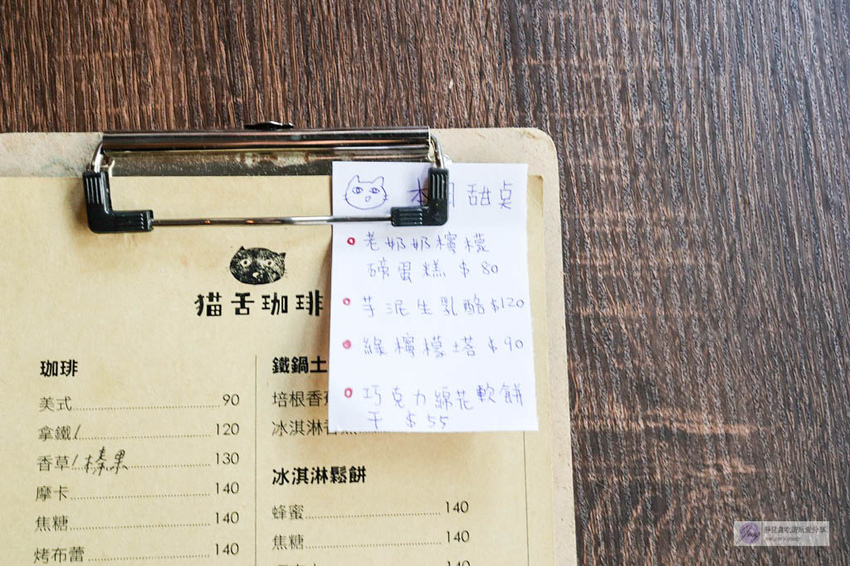 猫舌珈琲
珈琲
美式 90
拿鐵/ 120
香草/榛果 130
摩卡 140
焦糖 140
烤布蕾 140
鐵鍋土
培根香
冰淇淋
冰淇淋鬆餅
蜂蜜 140
焦糖 140
140
本日甜桌
老奶奶檸檬
磅蛋糕 $80
芋泥生乳酪 $120
綠檸檬塔 $90
巧克力綿花軟餅
干 $55